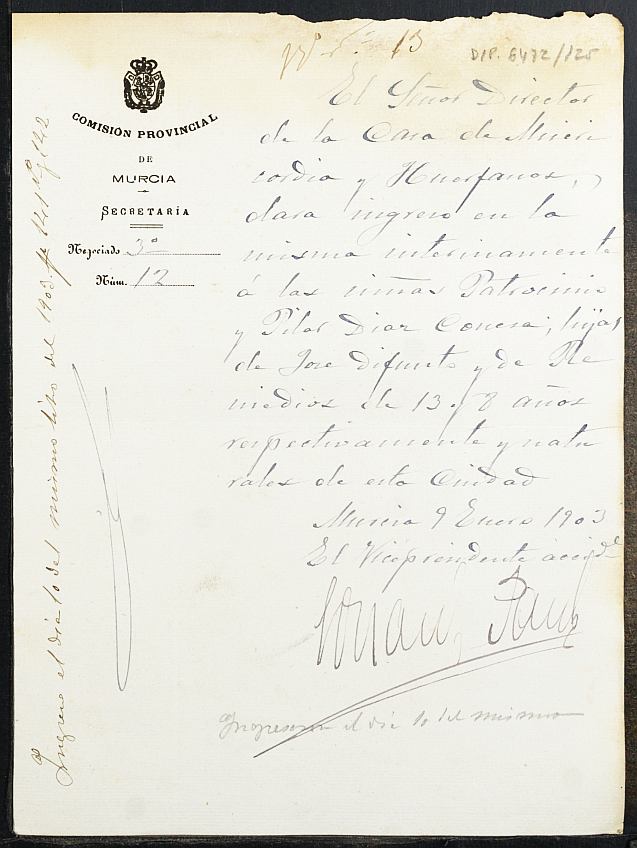 13
DIP. 6472/125
COMISIÓN PROVINCIAL
DE
MURCIA
SECRETARÍA
Negociado 3º
Núm. 12
El Señor Director
de la Casa de Miseri
cordia y Huerfanos,
dara ingreso en la
misma interinamente
á las niñas Patrocinio
y Pilar Diaz Conesa, hijas
de Jose difunto y de Re
medios de 13 y 8 años
respectivamente y natu
rales de esta Ciudad
Murcia 9 Enero 1903
El Vicepresidente accidl
Ingresaron el dia 10 del mismo
Ingreso el dia 10 del mismo libro del 1903